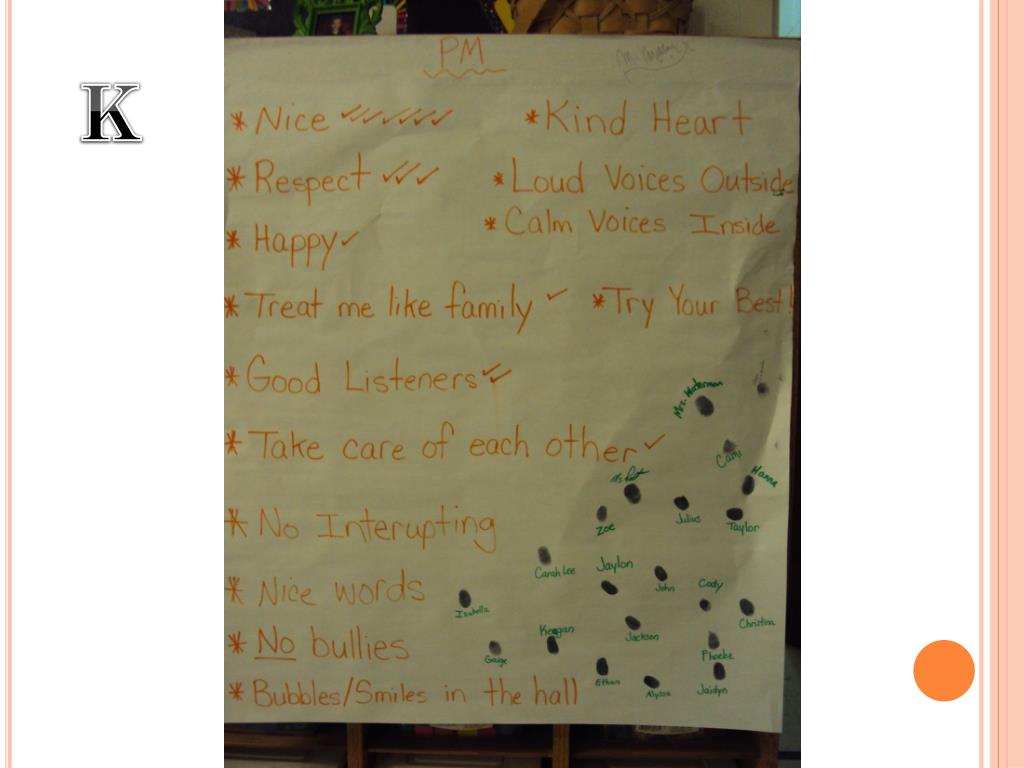 K
PM
* Nice ✓✓✓✓✓✓
* Kind Heart
* Respect ✓✓✓
* Loud Voices Outside
* Calm Voices Inside
* Happy ✓
* Treat me like family ✓
* Try Your Best!
* Good Listeners ✓✓
Mrs. Waterman
* Take care of each other ✓
Cami
Hanna
* No Interupting
Zoe
Julius
Taylor
Carah Lee
Jaylon
John
Cody
* Nice words
Isabella
Christina
Keegan
Jackson
* No bullies
Gaige
Phoebe
Ethan
Alyssa
Jaidyn
* Bubbles/Smiles in the hall